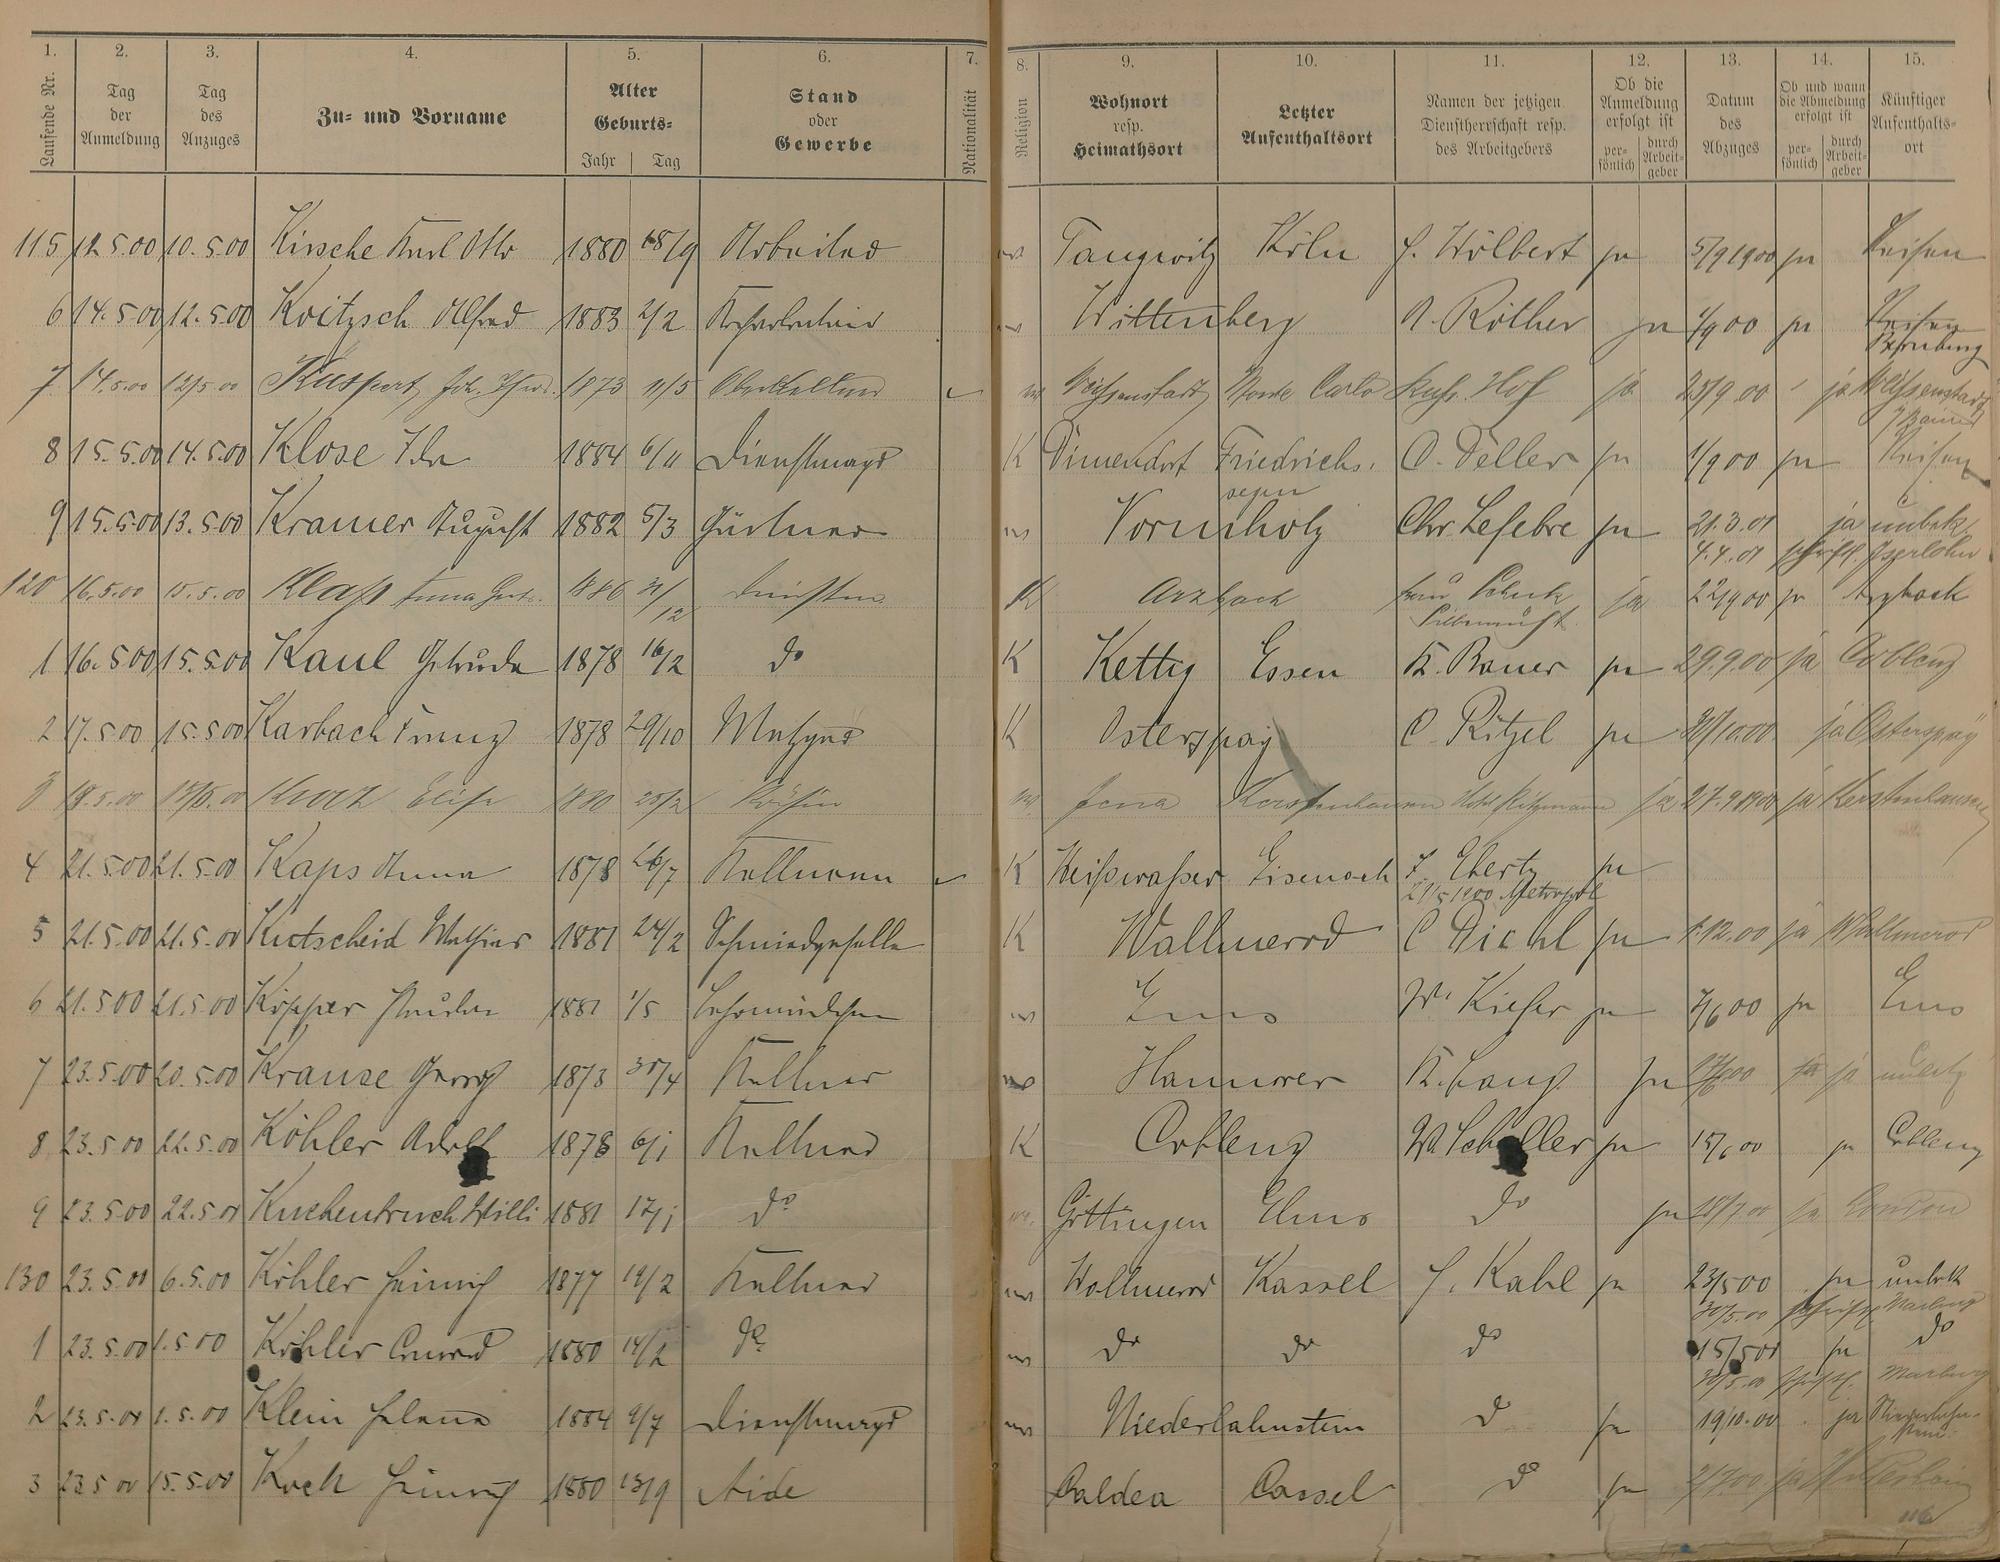 1. 2. 3. 4. 5. 6. 7. 8. 9. 10. 11. 12. 13. 14. 15.
Laufende Nr.
Tag der Anmeldung
Tag des Anzuges
Zu- und Vorname
Alter Geburts-
Jahr Tag
Stand oder Gewerbe
Nationalität
Religion
Wohnort resp. Heimathsort
Letzter Aufenthaltsort
Namen der jetzigen Dienstherrschaft resp. des Arbeitgebers
Ob die Anmeldung erfolgt ist
per- sönlich durch Arbeit- geber
Datum des Abzuges
Ob und wann die Abmeldung erfolgt ist
per- sönlich durch Arbeit- geber
Künftiger Aufenthalts- ort
115 12.5.00 10.5.00 Kirsche Karl Otto 1880 18/9 Arbeiter Köln ja 5/9 1900 ja Reisen
6 14.5.00 12.5.00 Koitzsch Alfred 1883 2/2 Wittenberg A. Röther ja 1/9 00 ja Reisen
7 14.5.00 12/5.00 1873 11/5 Oberkellner Monte Carlo Hof ja 25/9.00 ja
8 15.5.00 14.5.00 Klose Ida 1884 6/11 Dienstmagd K Friedrichs- ja 1/9 00 ja Reisen
segen
9 15.5.00 13.5.00 Kramer August 1882 5/3 Gärtner Vornholz Chr. Lefebre ja 21.3.01 ja unbek
4.4.01 schriftl. Iserlohn
120 16.5.00 15.5.00 Klaß Anna 1886 31/12 K Arzbach ja 22/9 00 ja Arzbach
1 16.5.00 15.5.00 Kaul Gertruda 1878 16/2 do K Kettig Essen K. Bauer ja 29.9.00 ja Coblenz
2 17.5.00 15.5.00 Karbach Franz 1878 29/10 Metzger K Osterspay C. Ritzel ja ja Osterspay
3 18.5.00 Elise 1880 25/2 Jena Kerstenhausen ja 27.9.1900 ja Kerstenhausen
4 21.5.00 21.5.00 Kaps Anna 1878 26/7 Kellnerin K Weißwaßer Eisenach Ebertz ja
21/5 1900 Metropol
5 21.5.00 21.5.00 Kutscheid Mathias 1881 24/2 Schmiedgeselle K Wallmerod C Diehl ja 1.12.00 ja Wallmerod
6 21.5.00 21.5.00 Köpper 1881 1/5 Lehrmädchen Ems W. Kiefer ja 7/6 00 ja Ems
7 23.5.00 20.5.00 Krause Georg 1873 30/4 Kellner Hannover K. Lang ja ja
8 23.5.00 22.5.00 Köhler Adolf 1878 6/1 Kellner K Coblenz W. Scheller ja 15/6 00 ja Coblenz
9 23.5.00 22.5.00 Kuchenbuch Willi 1881 17/1 do Göttingen Ems do ja ja London
130 23.5.00 6.5.00 Köhler Heinrich 1877 19/2 Kellner Wollmerod Kassel J. Kahl ja 23/5 00 ja unbek
30/5.00 schriftl. Marburg
1 23.5.00 1.5.00 Köhler Conrad 1880 14/2 do do do do 15/5 00 ja do
30/5.00 schriftl. Marburg
2 23.5.00 1.5.00 Klein Helena 1884 9/7 Dienstmagd Niederlahnstein do ja 19/10.00 ja Niederlahn-
stein
3 23.5.00 15.5.00 Koch Heinrich 1880 13/9 Aide Caldea Cassel do ja ja
116